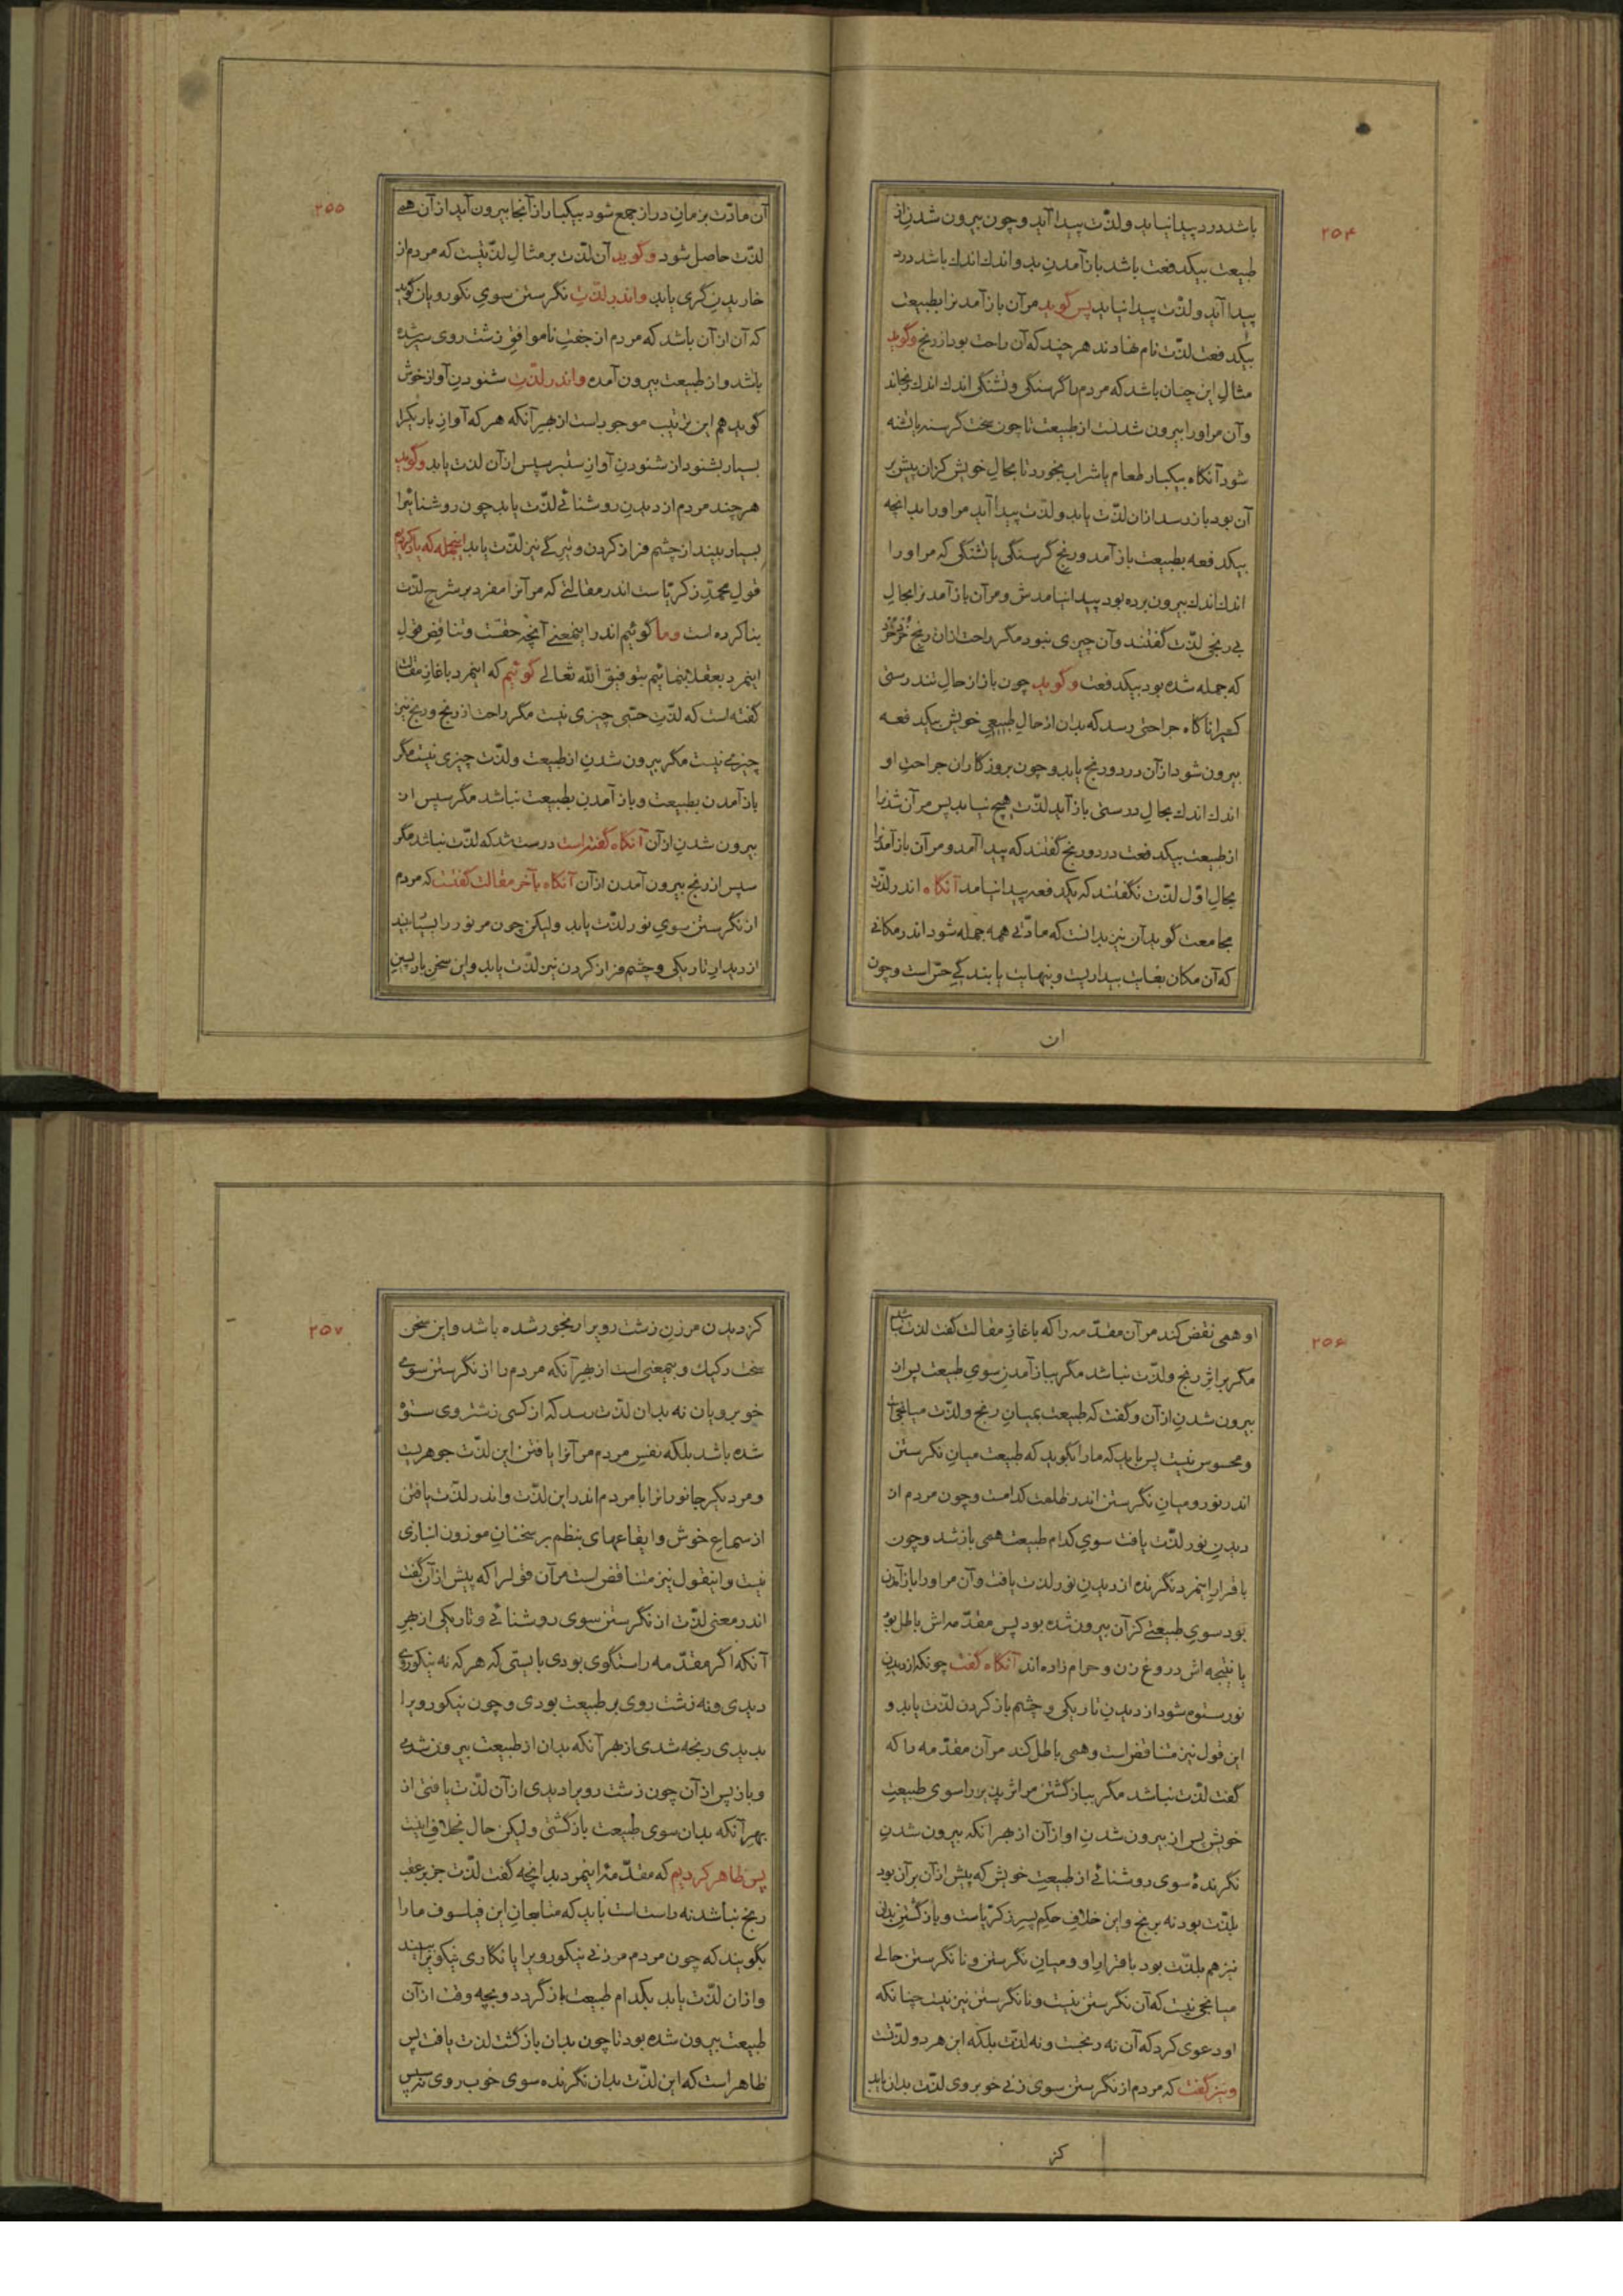 ۲۵۴
باشد درد پیدا نیاید ولذّت پیدا آید وچون بیرون شدن از
طبیعت بیکدفعت باشد باز آمدن بد واندك اندك باشد درد
پیدا آید ولذّت پیدا نیاید پس گوید مرآن باز آمدنرا بطبیعت
بیکدفعت لذّت نام نهادند هرچند که آن راحت بود از رنج وگوید
مثال این چنان باشد که مردم را گرسنگی وتشنگی اندك اندك رنجاند
وآن مراورا بیرون شدنست از طبیعت تا چون سخت گرسنه یا تشنه
شود آنگاه بیکبار طعام یا شراب بخورد تا بحال خویش کزان پیش بر
آن بود باز رسد ازان لذّت یابد ولذّت پیدا آید مراورا بدانچه
بیکدفعه بطبیعت باز آمد ورنج گرسنگی یا تشنگی که مراورا
اندك اندك بیرون برده بود پیدا نیامدش ومرآن باز آمدنرا بحال
بی رنجی لذّت گفتند وآن چیزی نبود مگر راحت ازان رنج خرد خرد
که جمله شده بود بیکدفعت وگوید چون باز از حال تندرستی
کسیرا ناگاه جراحتی رسد که بدان از حال طبیعی خویش بیکدفعه
بیرون شود ازآن درد ورنج یابد وچون بروزگاران جراحت او
اندك اندك بحال درستی باز آید لذّت هیچ نیابد پس مرآن شدنرا
از طبیعت بیکدفعت درد ورنج گفتند که پیدا آمد ومرآن باز آمدنرا
بحال اوّل لذّت نگفتند که بیکدفعه پیدا نیامد آنگاه اندر لذّت
مجامعت گوید آن نیز بدانست که مادّتی همه جمله شود اندر مکانی
که آن مکان بغایت بیداریست وبنهایت یابندگی حسّ است وچون
ان
۲۵۵
آن مادّت بزمان دراز جمع شود بیکبار از آنجا بیرون آید از آن همی
لذّت حاصل شود وگوید آن لذّت بر مثال لذّتیست که مردم از
خاریدن گری یابد واندر لذّت نگرستن سوی نکورویان گوید
که آن از آن باشد که مردم از جفت ناموافق زشت روی سیر شده
باشد واز طبیعت بیرون آمده واندر لذّت شنودن آواز خوش
گوید هم این ترتیب موجود است از بهر آنکه هر که آواز باریکرا
بسیار بشنود از شنودن آواز ستبر سپس ازآن لذت یابد وگوید
هرچند مردم از دیدن روشنائی لذّت یابد چون روشنائیرا
بسیار بیند از چشم فراز کردن وتیرگی نیز لذّت یابد اینجمله که یاد کردیم
قول محمّد زکریّاست اندر مقالتی که مرآنرا مفرد بر شرح لذّت
بنا کرده است وما گوئیم اندر اینمعنی آنچه حقّست وتناقض قول
اینمرد بعقلا بنمائیم بتوفیق اللّه تعالی گوئیم که اینمرد باغاز مقالت
گفته است که لذّت حسّی چیزی نیست مگر راحت از رنج ورنج نیز
چیزی نیست مگر بیرون شدن از طبیعت ولذّت چیزی نیست مگر
باز آمدن بطبیعت وباز آمدن بطبیعت نباشد مگر سپس از
بیرون شدن ازآن آنگاه گفته است درست شد که لذّت نباشد مگر
سپس از رنج بیرون آمدن ازآن آنگاه بآخر مقالت گفتست که مردم
از نگرستن سوی نور لذّت یابد ولیکن چون مر نور را بسیار بیند
از دیدار تاریکی وچشم فراز کردن نیز لذّت یابد واین سخن بازپسین
۲۵۶
او همی نقض کند مرآن مقدّمه را که باغاز مقالت گفت لذت نباشد
مگر بر اثر رنج ولذّت نباشد مگر بباز آمدن سوی طبیعت پس از
بیرون شدن ازآن وگفت که طبیعت بمیان رنج ولذّت میانجی است
ومحسوس نیست پس باید که مارا بگوید که طبیعت میان نگرستن
اندر نور ومیان نگرستن اندر ظلمت کدامست وچون مردم از
دیدن نور لذّت یافت سوی کدام طبیعت همی باز شد وچون
باقرار اینمرد نگرنده از دیدن نور لذت یافت وآن مراورا باز آمدن
بود سوی طبیعتی کزآن بیرون شده بود پس مقدّمه اش باطل بود
یا نتیجه اش دروغ زن وحرام زاده اند آنگاه گفت چونکه از دیدن
نور ستوه شود از دیدن تاریکی وچشم باز کردن لذّت یابد و
این قول نیز متناقض است وهمی باطل کند مرآن مقدّمه را که
گفت لذّت نباشد مگر بباز گشتن مر اثر پذیر را سوی طبیعت
خویش پس از بیرون شدن او ازآن از بهر آنکه بیرون شدن
نگرندهٔ سوی روشنائی از طبیعت خویش که پیش ازآن برآن بود
بلذّت بود نه برنج واین خلاف حکم پسر زکریّاست وباز گشتن بدان
نیز هم بلذّت بود باقرار او ومیان نگرستن ونا نگرستن حالی
میانجی نیست که آن نگرستن نیست ونا نگرستن نیز نیست چنانکه
او دعوی کرد که آن نه رنجست ونه لذّت بلکه این هر دو لذّتست
ونیز گفت که مردم از نگرستن سوی زنی خوبروی لذّت بدان یابد
کز
۲۵۷
کز دیدن مر زن زشت رویرا رنجور شده باشد واین سخن
سخت رکیك وبیمعنی است از بهر آنکه مردم را از نگرستن سوی
خوبرویان نه بدان لذّت رسد که از کسی زشتروی ستوه
شده باشد بلکه نفس مردم مرآنرا یافتن این لذّت جوهریست
ومر دیگر جانورانرا با مردم اندر این لذّت واندر لذّت یافتن
از سماع خوش وایقاعهای بنظم بر سخنان موزون انبازی
نیست واینقول نیز متناقض است مرآن قولرا که پیش ازآن گفت
اندر معنی لذّت از نگرستن سوی روشنائی وتاریکی از بهر
آنکه اگر مقدّمه راستگوی بودی بایستی که هر که نه نیکوروی
دیدی ونه زشت روی بر طبیعت بودی وچون نیکورویرا
بدیدی رنجه شدی از بهر آنکه بدان از طبیعت بیرون شدی
وباز پس ازآن چون زشت رویرا دیدی ازآن لذّت یافتی از
بهر آنکه بدان سوی طبیعت باز گشتی ولیکن حال بخلاف اینست
پس ظاهر کردیم که مقدّمهٔ اینمرد بدانچه گفت لذّت جز بر عقب
رنج نباشد نه راست است باید که متابعان این فیلسوف مارا
بگویند که چون مردم مر زنی نیکورویرا یا نگاری نیکوتر ببیند
وازان لذّت یابد بکدام طبیعت باز گردد وبچه وقت ازآن
طبیعت بیرون شده بود تا چون بدان باز گشت لذت یافت پس
ظاهر است که این لذّت بدان نگرنده سوی خوب روی سپس